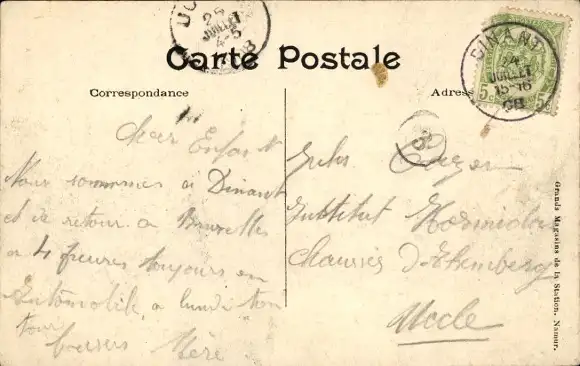 UC
25
JUILLET
4-5
08
Carte Postale
DINANT
24
JUILLET
15-16
08
5c 5c
Correspondance
Adres
38
Cher Enfant
Nous sommes à Dinant
et de retour à Bruxelles
à 4 heures toujours en
Automobile, à lundi ton
tour
baisers Mère
Jules
Institut
Chaussée d'Etemberg
Uccle
Grands Magasins de la Station, Namur.